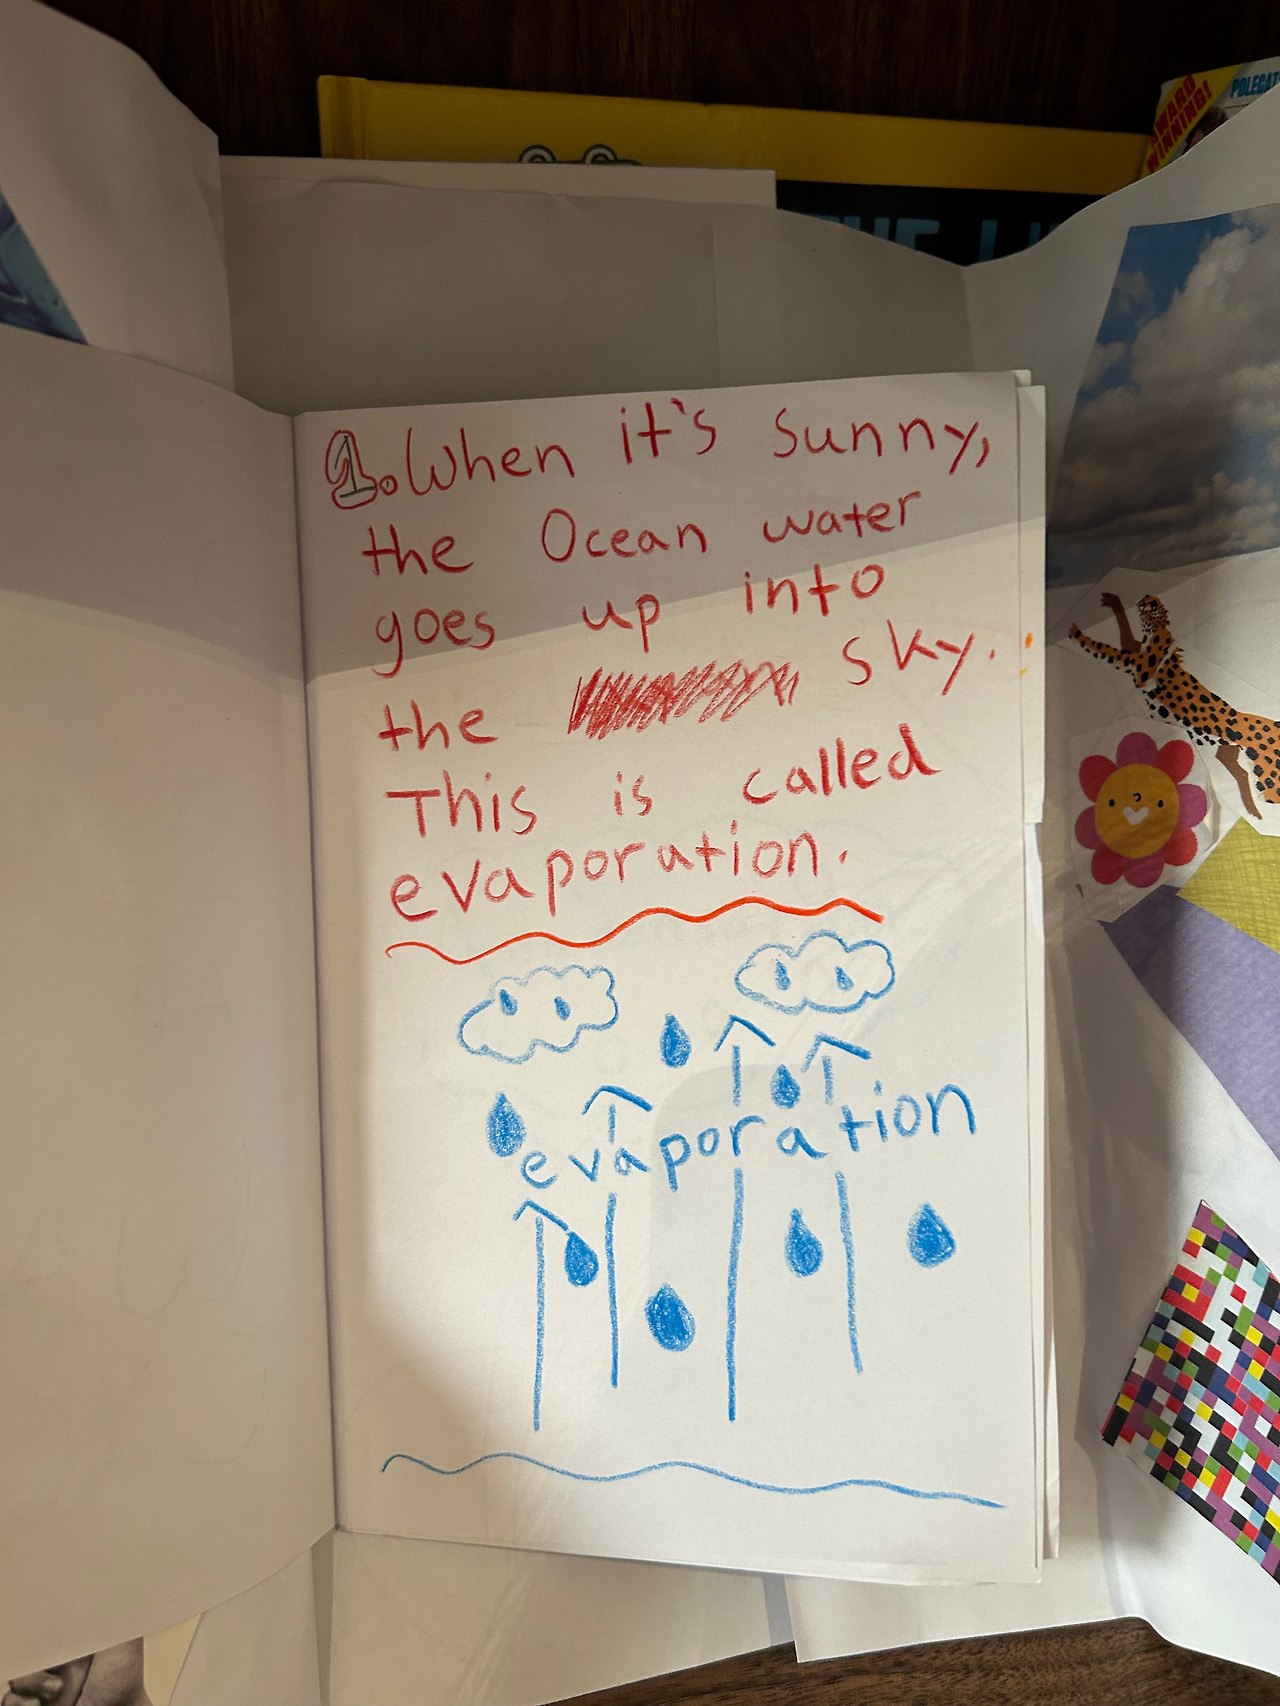 AWARD
WINNING!
1. When it's sunny,
the Ocean water
goes up into
the sky.
This is called
evaporation.
evaporation